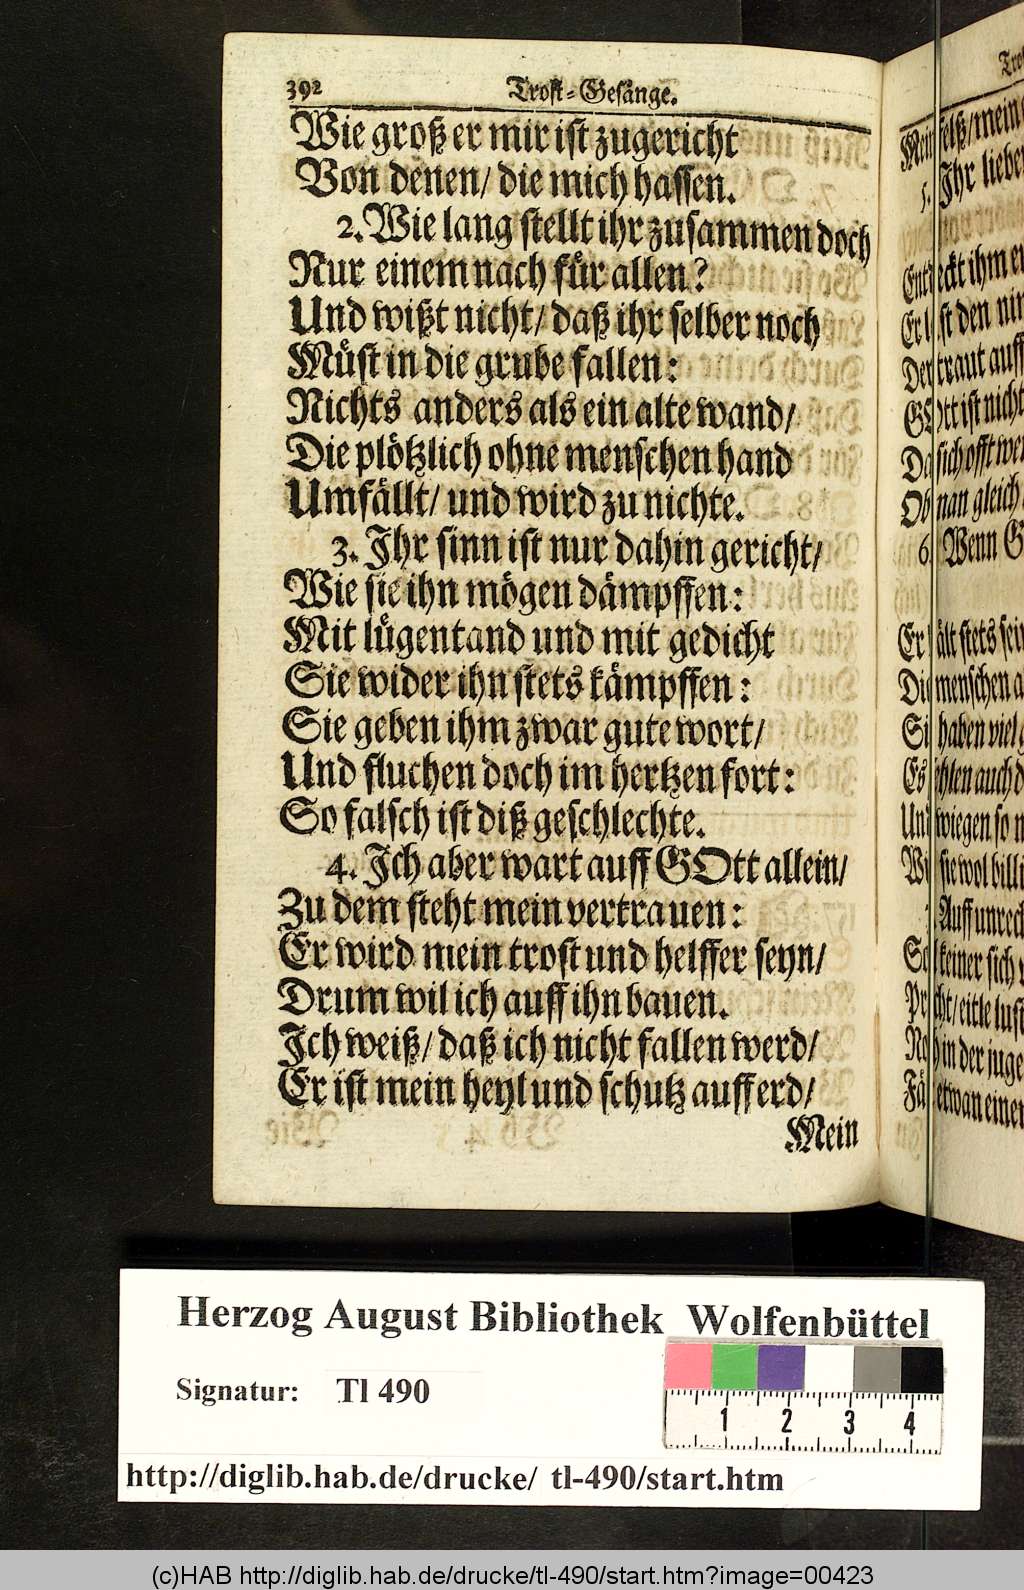 392
Trost-Gesänge.
Wie groß er mir ist zugericht
Von denen/ die mich hassen.
2. Wie lang stellt ihr zusammen doch
Nur einem nach für allen?
Und wißt nicht/ daß ihr selber noch
Müst in die grube fallen:
Nichts anders als ein alte wand/
Die plötzlich ohne menschen hand
Umfällt/ und wird zu nichte.
3. Ihr sinn ist nur dahin gericht/
Wie sie ihn mögen dämpffen:
Mit lügentand und mit gedicht
Sie wider ihn stets kämpffen:
Sie geben ihm zwar gute wort/
Und fluchen doch im hertzen fort:
So falsch ist diß geschlechte.
4. Ich aber wart auff GOtt allein/
Zu dem steht mein vertrauen:
Er wird mein trost und helffer seyn/
Drum wil ich auff ihn bauen.
Ich weiß/ daß ich nicht fallen werd/
Er ist mein heyl und schutz auff erd/
Mein
mein
5. Ihr
ihm
den
auff
ist nicht
sich offt
gleich
6. Wenn
stets
menschen
haben viel
auch
wiegen so
sie wol
Auff
keiner sich
eitle
in der
etwan
Herzog August Bibliothek Wolfenbüttel
Signatur: Tl 490
1 2 3 4
http://diglib.hab.de/drucke/ tl-490/start.htm
(c)HAB http://diglib.hab.de/drucke/tl-490/start.htm?image=00423